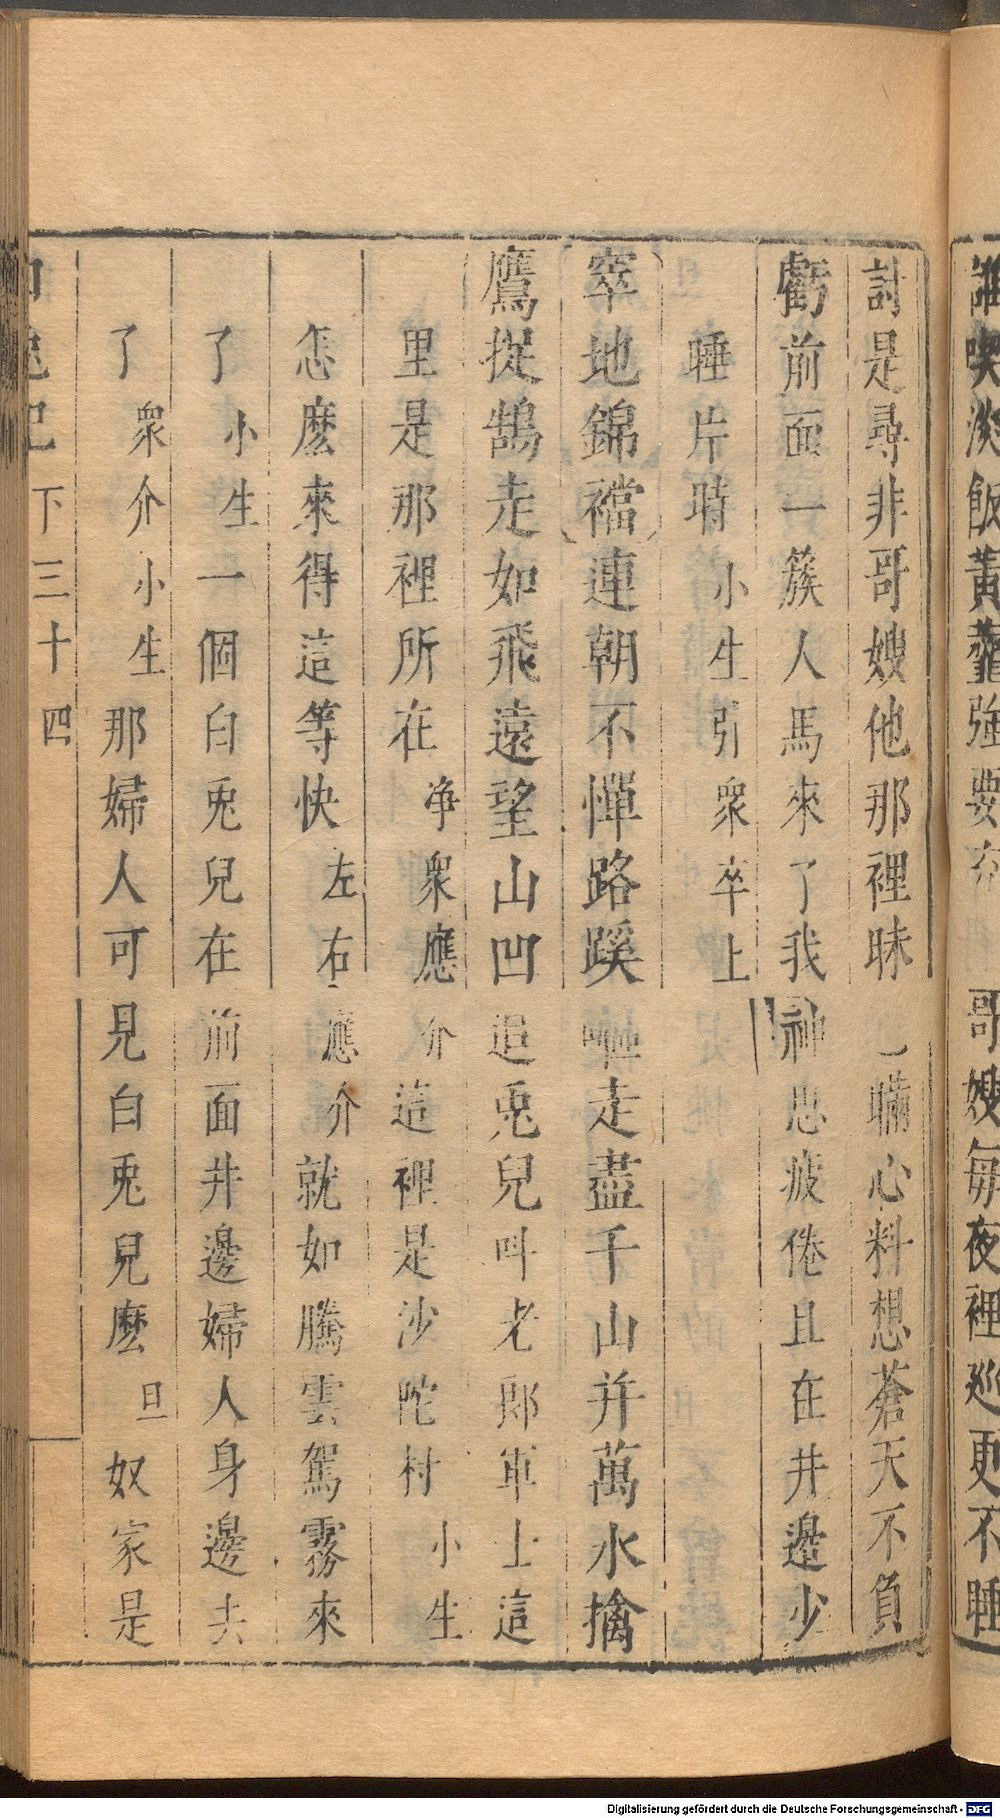 誰喫淡飯黃虀強要充 哥嫂每夜裡巡更不睡
討是尋非哥嫂他那裡昧一瞞心料想蒼天不負
虧前面一簇人馬來了我神思疲倦且在井邊少
睡片時小生引眾卒上
窣地錦襠連朝不憚路蹊嶇走盡千山并萬水擒
鷹捉鵠走如飛遠望山凹追兎兒叫老郎軍士這
里是那裡所在净眾應介這裡是沙陀村小生
怎麼來得這等快左右應介就如騰雲駕霧來
了小生一個白兎兒在前面井邊婦人身邊去
了眾介小生那婦人可見白兎兒麼旦奴家是
白兎記 下三十四
Digitalisierung gefördert durch die Deutsche Forschungsgemeinschaft - DFG